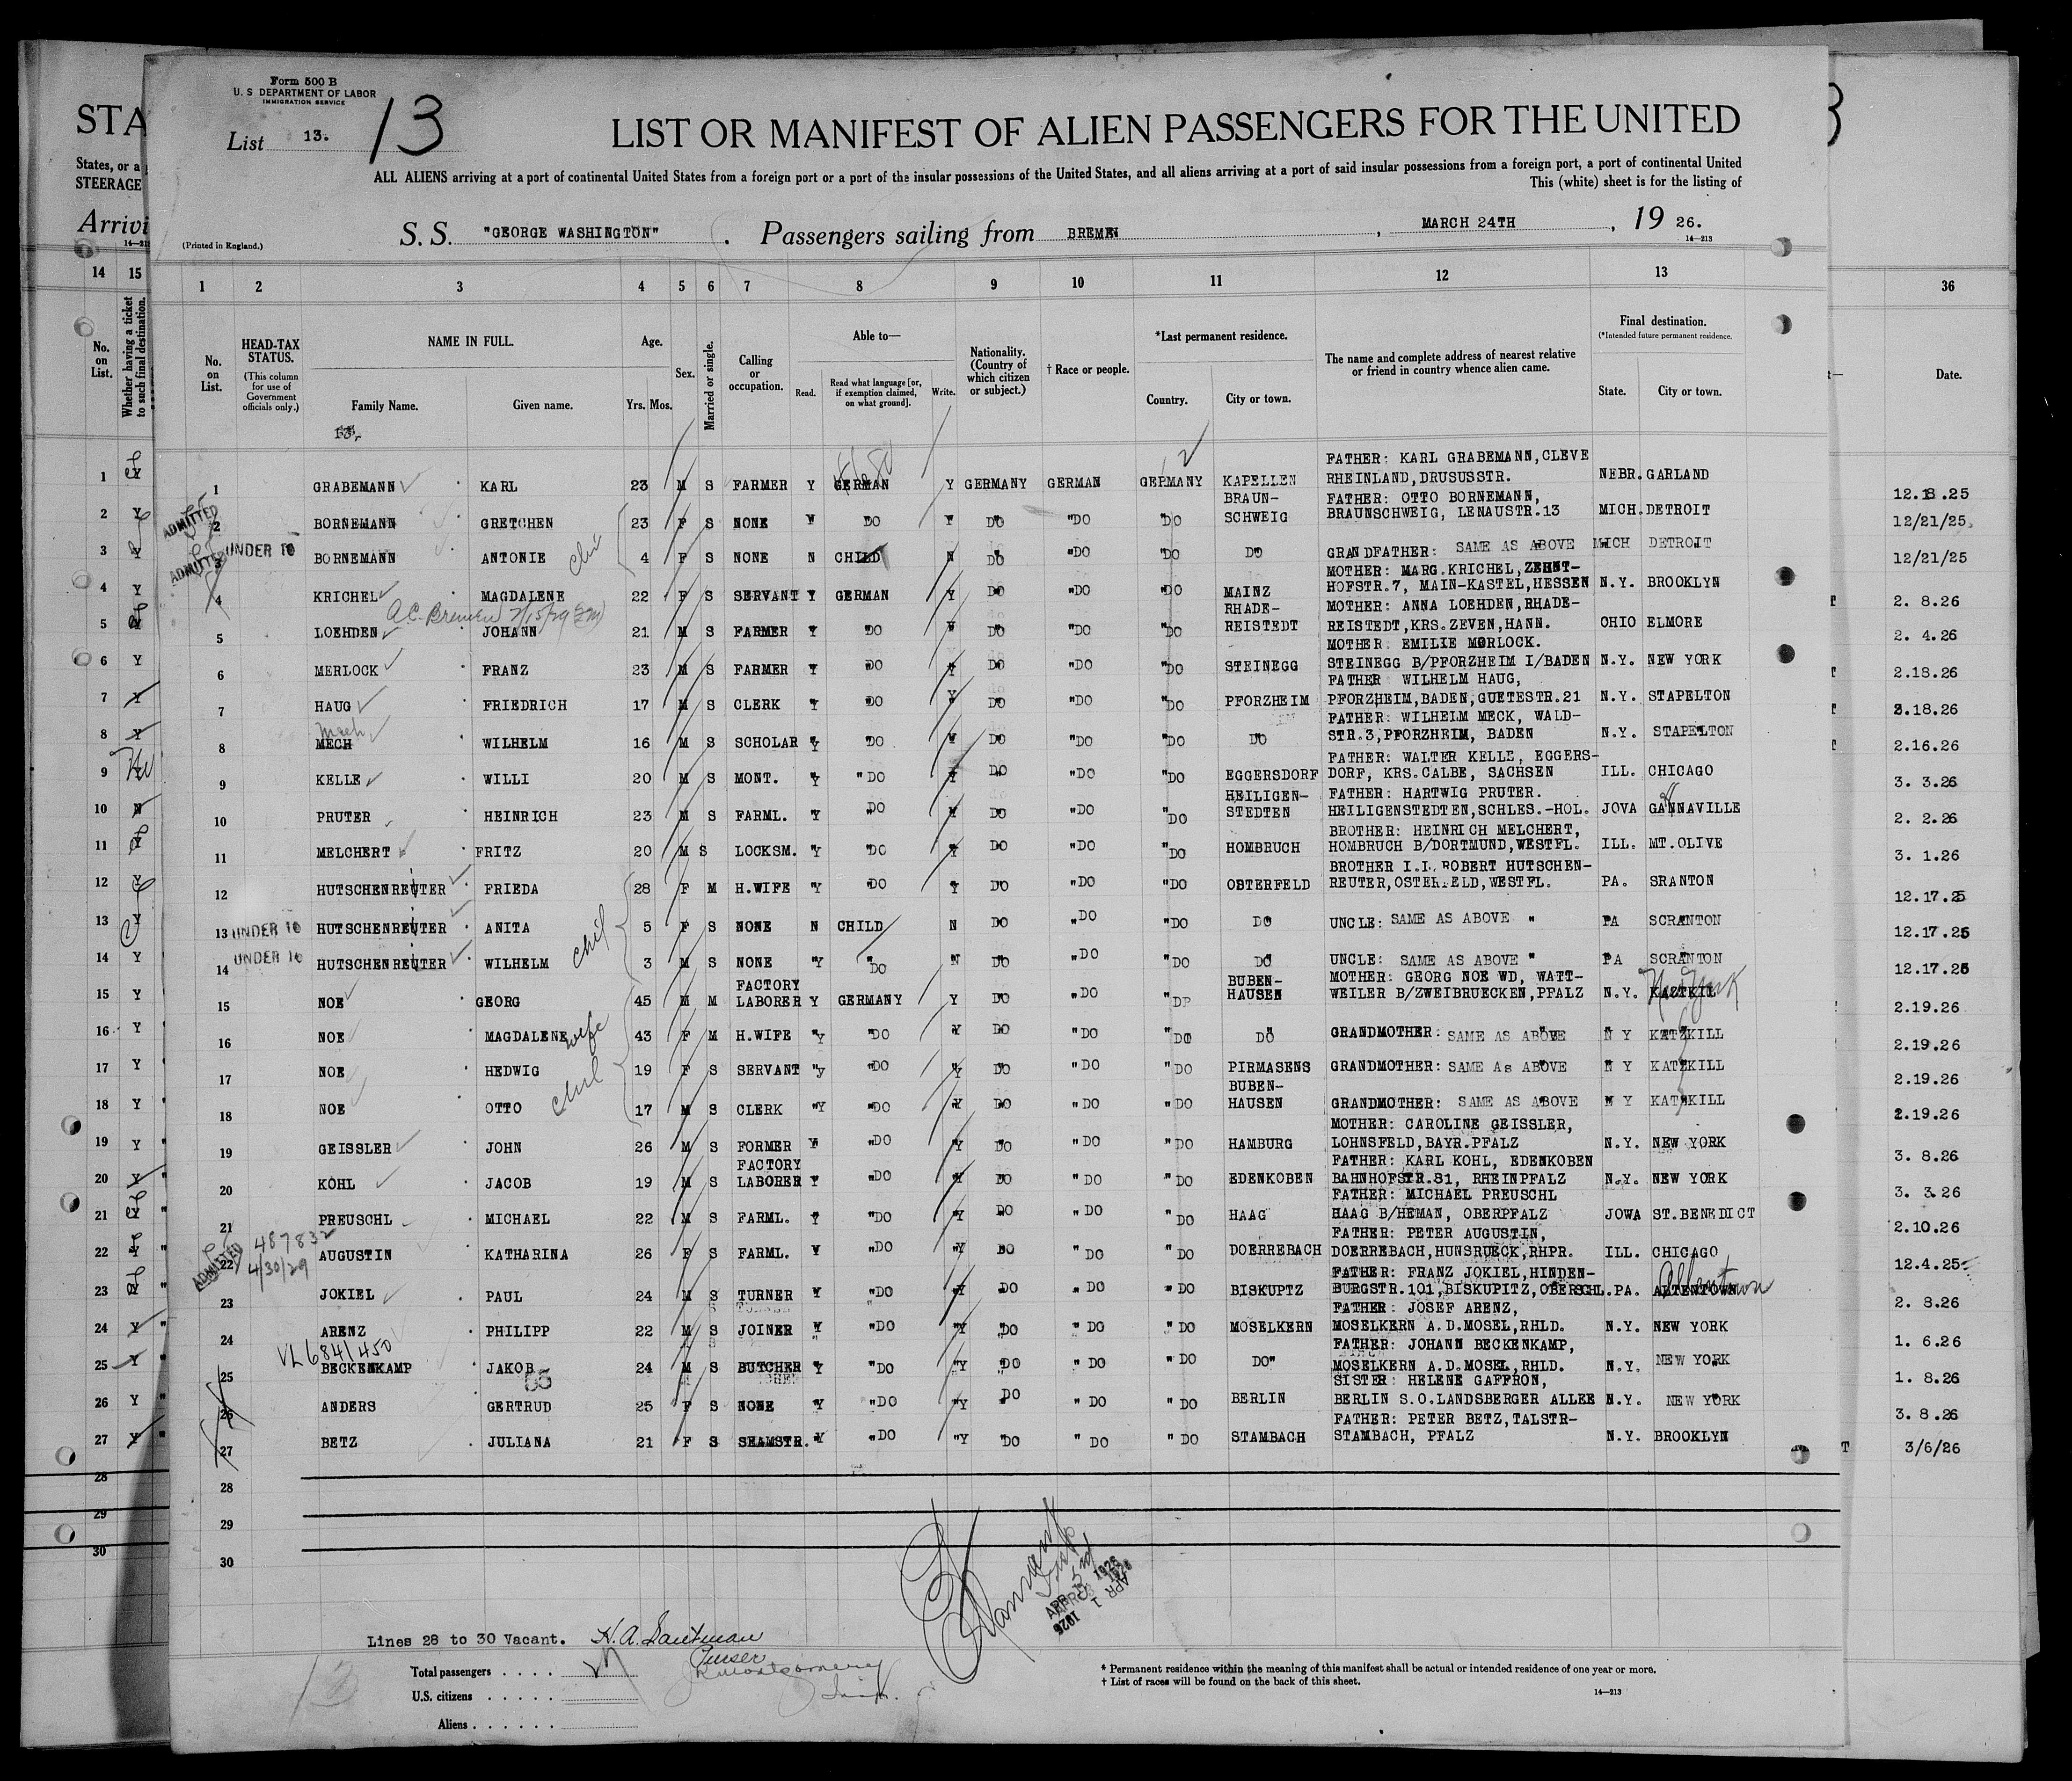 Form 500 B
U. S DEPARTMENT OF LABOR
IMMIGRATION SERVICE
List 13.
13
LIST OR MANIFEST OF ALIEN PASSENGERS FOR THE UNITED
ALL ALIENS arriving at a port of continental United States from a foreign port or a port of the insular possessions of the United States, and all aliens arriving at a port of said insular possessions from a foreign port, a port of continental United
This (white) sheet is for the listing of
STA
States, or a
STEERAGE
Arrivi
(Printed in England.)
S. S. "GEORGE WASHINGTON" . Passengers sailing from BREMEN , MARCH 24TH , 19 26.
14—213
14 15 1 2 3 4 5 6 7 8 9 10 11 12 13 36
No. on List.
Whether having a ticket to such final destination.
No. on List.
HEAD-TAX STATUS.
(This column for use of Government officials only.)
NAME IN FULL.
Family Name. Given name.
Age.
Yrs. Mos.
Sex.
Married or single.
Calling or occupation.
Able to—
Read. Read what language [or, if exemption claimed, on what ground]. Write.
Nationality. (Country of which citizen or subject.)
† Race or people.
*Last permanent residence.
Country. City or town.
The name and complete address of nearest relative or friend in country whence alien came.
Final destination.
(*Intended future permanent residence.
State. City or town.
Date.
FATHER: KARL GRABEMANN, CLEVE
1 Y 1 GRABEMANN KARL 23 M S FARMER Y GERMAN Y GERMANY GERMAN GERMANY KAPELLEN RHEINLAND, DRUSUSSTR. NEBR. GARLAND 12.18.25
BRAUN- FATHER: OTTO BORNEMANN,
2 Y ADMITTED 2 BORNEMANN GRETCHEN 23 F S NONE Y DO Y DO "DO "DO SCHWEIG BRAUNSCHWEIG, LENAUSTR.13 MICH. DETROIT 12/21/25
3 Y ADMITTED 3 UNDER 16 BORNEMANN ANTONIE 4 F S NONE N CHILD N DO "DO "DO DO GRANDFATHER: SAME AS ABOVE MICH DETROIT 12/21/25
MOTHER: MARG. KRICHEL, ZEHNT-
4 Y 4 KRICHEL MAGDALENE 22 F S SERVANT Y GERMAN Y DO "DO "DO MAINZ HOFSTR.7, MAIN-KASTEL, HESSEN N.Y. BROOKLYN 2. 8.26
RHADE- MOTHER: ANNA LOEHDEN, RHADE-
5 5 LOEHDEN JOHANN 21 M S FARMER Y "DO Y DO "DO "DO REISTEDT REISTEDT, KRS. ZEVEN, HANN. OHIO ELMORE 2. 4.26
MOTHER EMILIE MORLOCK.
6 Y 6 MERLOCK FRANZ 23 M S FARMER Y "DO Y DO "DO "DO STEINEGG STEINEGG B/PFORZHEIM I/BADEN N.Y. NEW YORK 2.18.26
FATHER WILHELM HAUG,
7 Y 7 HAUG FRIEDRICH 17 M S CLERK Y "DO Y DO "DO "DO PFORZHEIM PFORZHEIM, BADEN, GUETESTR.21 N.Y. STAPELTON 2.18.26
FATHER: WILHELM MECK, WALD-
8 Y 8 MECH WILHELM 16 M S SCHOLAR Y "DO Y DO "DO "DO DO STR.3, PFORZHEIM, BADEN N.Y. STAPELTON 2.16.26
FATHER: WALTER KELLE, EGGERS-
9 Y 9 KELLE WILLI 20 M S MONT. "Y "DO "Y DO "DO "DO EGGERSDORF DORF, KRS. CALBE, SACHSEN ILL. CHICAGO 3. 3.26
HEILIGEN- FATHER: HARTWIG PRUTER.
10 N 10 PRUTER HEINRICH 23 M S FARML. "Y "DO Y DO "DO "DO STEDTEN HEILIGENSTEDTEN, SCHLES.-HOL. JOVA GANNAVILLE 2. 2.26
BROTHER: HEINRICH MELCHERT,
11 Y 11 MELCHERT FRITZ 20 M S LOCKSM. "Y "DO Y DO "DO "DO HOMBRUCH HOMBRUCH B/DORTMUND, WESTFL. ILL. MT.OLIVE 3. 1.26
BROTHER I.L. ROBERT HUTSCHEN-
12 Y 12 HUTSCHENREUTER FRIEDA 28 F M H.WIFE "Y "DO "Y DO "DO "DO OSTERFELD REUTER, OSTERFELD, WESTFL. PA. SRANTON 12.17.25
13 Y 13 UNDER 16 HUTSCHENREUTER ANITA 5 F S NONE N CHILD N DO "DO "DO DO UNCLE: SAME AS ABOVE " PA SCRANTON 12.17.25
14 Y 14 UNDER 16 HUTSCHENREUTER WILHELM 3 M S NONE "Y "DO "N DO "DO "DO DO UNCLE: SAME AS ABOVE " PA SCRANTON 12.17.25
FACTORY BUBEN- MOTHER: GEORG NOE WD, WATT-
15 Y 15 NOE GEORG 45 M M LABORER Y GERMANY Y DO "DO "DO HAUSEN WEILER B/ZWEIBRUECKEN, PFALZ N.Y. KAETKILL New York 2.19.26
16 Y 16 NOE MAGDALENE wife 43 F M H.WIFE "Y "DO "Y DO "DO "DO DO GRANDMOTHER: SAME AS ABOVE N Y KATZKILL 2.19.26
17 Y 17 NOE HEDWIG 19 F S SERVANT "Y "DO "Y DO "DO "DO PIRMASENS GRANDMOTHER: SAME AS ABOVE N Y KATZKILL 2.19.26
BUBEN-
18 Y 18 NOE OTTO 17 M S CLERK "Y "DO "Y DO "DO "DO HAUSEN GRANDMOTHER: SAME AS ABOVE N Y KATZKILL 2.19.26
MOTHER: CAROLINE GEISSLER,
19 Y " 19 GEISSLER JOHN 26 M S FORMER Y "DO "Y DO "DO "DO HAMBURG LOHNSFELD, BAYR.PFALZ N.Y. NEW YORK 3. 8.26
FACTORY FATHER: KARL KOHL, EDENKOBEN
20 Y " 20 KOHL JACOB 19 M S LABORER Y "DO "Y DO "DO "DO EDENKOBEN BAHNHOFSTR.81, RHEINPFALZ N.Y. NEW YORK 3. 3.26
FATHER: MICHAEL PREUSCHL
21 Y " 21 PREUSCHL MICHAEL 22 M S FARML. Y "DO "Y DO "DO "DO HAAG HAAG B/HEMAN, OBERPFALZ JOWA ST.BENEDICT 2.10.26
487832
FATHER: PETER AUGUSTIN,
22 Y " ADMITTED 22 4/30/29 AUGUSTIN KATHARINA 26 F S FARML. Y "DO "Y DO "DO "DO DOERREBACH DOERREBACH, HUNSRUECK, RHPR. ILL. CHICAGO 12.4.25
FATHER: FRANZ JOKIEL, HINDEN-
23 " 23 JOKIEL PAUL 24 M S TURNER Y "DO "Y DO "DO "DO BISKUPTZ BURGSTR.101, BISKUPITZ, OBERSCHL. PA. Allentown 2. 8.26
FATHER: JOSEF ARENZ,
24 Y " 24 ARENZ PHILIPP 22 M S JOINER Y "DO "Y DO "DO "DO MOSELKERN MOSELKERN A.D.MOSEL, RHLD. N.Y. NEW YORK 1. 6.26
VL684/450
FATHER: JOHANN BECKENKAMP,
25 Y " 25 BECKENKAMP JAKOB 24 M S BUTCHER Y "DO "Y DO "DO "DO DO" MOSELKERN A.D.MOSEL, RHLD. N.Y. NEW YORK 1. 8.26
SISTER: HELENE GAFFRON,
26 Y " 26 ANDERS GERTRUD 25 F S NONE "Y "DO "Y DO "DO "DO BERLIN BERLIN S.O.LANDSBERGER ALLEE N.Y. NEW YORK 3. 8.26
FATHER: PETER BETZ, TALSTR-
27 Y " 27 BETZ JULIANA 21 F S SEAMSTR. "Y "DO "Y DO "DO "DO STAMBACH STAMBACH, PFALZ N.Y. BROOKLYN 3/6/26
28 28
29 29
30 30
Lines 28 to 30 Vacant.
Purser
Total passengers . . . .
U.S. citizens . . . . . .
Aliens . . . . . .
* Permanent residence within the meaning of this manifest shall be actual or intended residence of one year or more.
† List of races will be found on the back of this sheet.
14—213